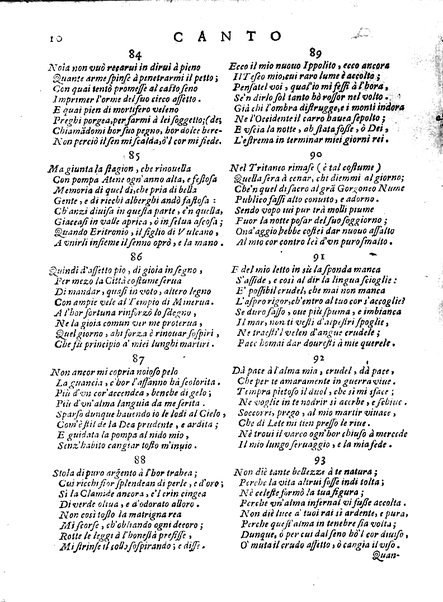 10 CANTO
84
Noia non vuò recarui in dirui à pieno
Quante arme spinse à penetrarmi il petto;
Con quai tentò promesse al casto seno
Imprimer l'orme del suo cieco affetto.
E quai pien di mortifero veleno
Preghi porgea, per farmi à lei soggetto; (de,
Chiamādomi hor suo pegno, hor dolce here-
Non perciò il sen mi scalda, ò l cor mi siede.
85
Ma giunta la stagion, che rinouella
Con pompa Atene ogn'anno alta, e festosa
Memoria di quel dì, che pria di bella
Gente, e di ricchi alberghi andò fastosa:
Ch'anzi diuisa in questa parte, e'n quella,
Giacea ſi in valle aprica, ò in selua ascosa;
Quando Eritronio, il figlio di Vulcano,
A vnirli insieme il senno oprò, e la mano.
86
Quindi d'assetto pio, di gioia in segno,
Per mezo la Città costume ferua
Di mandar, quasi in voto, altero legno
Con ampie vele al Tempio di Minerua.
A l'hor fortuna rinforzò lo sdegno,
Ne la gioia comun ver me proterua,
Quel giorno, ahi forza è rinouar sospiri,
Che fù principio d'miei lunghi martiri.
87
Non ancor mi copria noioso pelo
La guancia, e l'hor l'affanno hà scolorita.
Più d'vn cor accendea, benche di gelo;
Più d'vn'alma languia da me ferita.
Sparso dunque hauendo io le lodi al Cielo,
Com'è stil de la Dea prudente, e ardita;
E guidata la pompa al nido mio,
Senz'habito cangiar tosto m'inuio;
88
Stola di puro argento à l'hor trahea;
Cui ricchi fior splendean di perle, e d'oro;
Sì la Clamide ancora, e'l crin cingea
Di verde oliua, e d'odorato alloro.
Non così tosto la matrigna rea
Mi scorse, ch'obliando ogni decoro;
Rotte le leggi d l'honestà prefisse,
Mi strinse il collo, sospirando; e disse.
89
Ecco il mio nouo Ippolito, ecco ancora
Il Teseo mio, cui raro lume è accolto;
Pensatel voi, qual'io mi fessi à l'hora,
Se'n dirlo sol tanto hò rossor nel volto.
Già chi l'ombra distrugge, e i monti indora
Ne l'Occidente il carro hauea sepolto;
E vscia la notte, ah stata fosse, ò Dei,
L'estrema in terminar miei giorni rei.
90
Nel Tritaneo rimase (è tal costume)
Quella sera à cenar, chi diemmi al giorno;
Che'n quel dì sacro al grā Gorgoneo Nume
Publico fassi alto conuito, e adorno.
Sendo vopo mi pur trà molli piume
Fuor la notte posar del suo soggiorno;
Ond'aggio hebbe costei dar nuouo assalto
Al mio cor contro lei d'vn puro smalto.
91
E del mio letto in sù la sponda manca
S'asside, e così al dir la lingua scioglie:
E' possibil crudel, che mai non manca
L'aspro rigor, ch'entro al tuo cor s'accoglie?
Se duro sasso, oue più spuma, e imbianca
Il mar, non ti vestì d'aspetri spoglie,
Ne trasse velen d'angue crudele;
Pace homai dar dourestì à mie querele.
92
Dà pace à l'alma mia, crudel, dà pace,
Che per te amaramente in guerra viue.
Tempra pietoso il duol, che sì mi sface;
Ne voglie in te nodrir sì acerbe, e schiue.
Soccorri, prego, al mio martir viuace,
Che di Lete mi tien presso le riue.
Nè troui il varco ogn'hor chiuso à mercede
Il mio lungo seruaggio, e la mia fede.
93
Non diè tante bellezze à te natura;
Perche la vita altrui fosse indi tolta;
Nè celeste formò la tua figura;
Perche vn'alma infernal vi fusse accolta.
Non diè luce a' tuoi rai sì ardente, e pura,
Perche quest'alma in tenebre sia volta;
Dunque, ò per cui dal seno hò'l cor diuiso,
O' muta il crudo affetto, ò cangia il viso.
Quan-